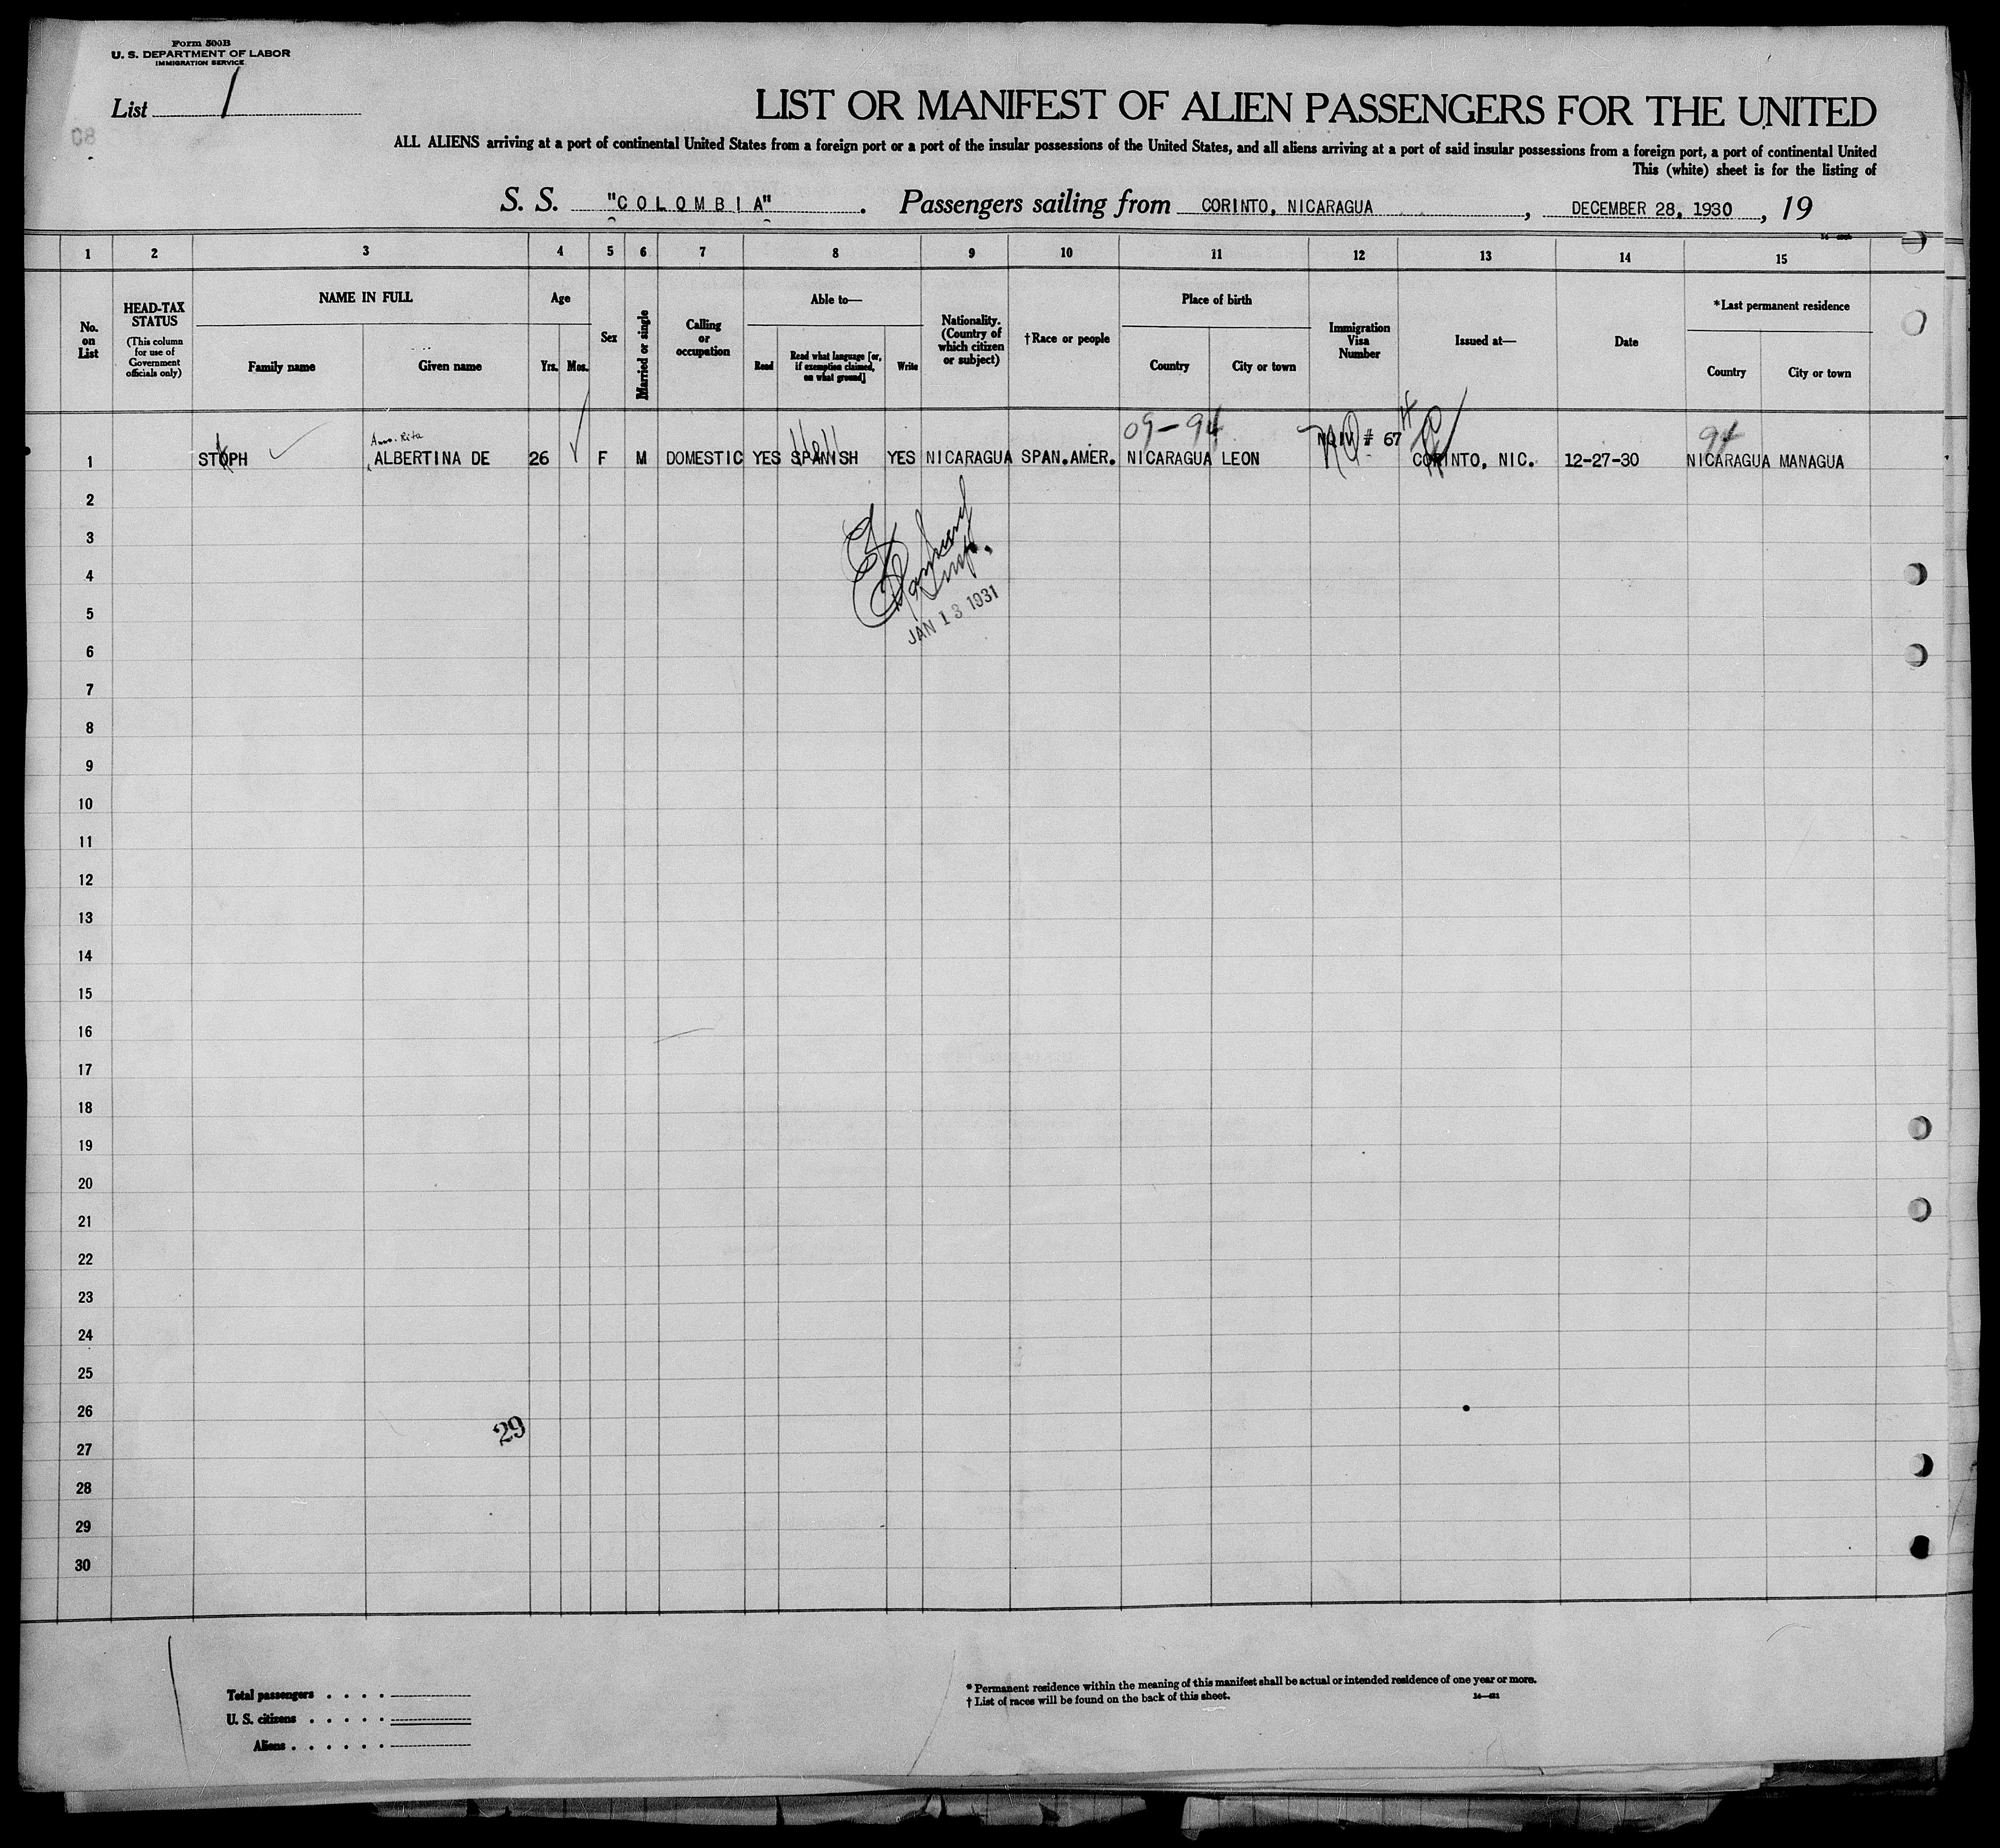 Form 500B
U. S. DEPARTMENT OF LABOR
IMMIGRATION SERVICE
List 1
LIST OR MANIFEST OF ALIEN PASSENGERS FOR THE UNITED
ALL ALIENS arriving at a port of continental United States from a foreign port or a port of the insular possessions of the United States, and all aliens arriving at a port of said insular possessions from a foreign port, a port of continental United
This (white) sheet is for the listing of
S. S. "COLOMBIA". Passengers sailing from CORINTO, NICARAGUA, DECEMBER 28, 1930, 19
1 2 3 4 5 6 7 8 9 10 11 12 13 14 15
No. on List
HEAD-TAX STATUS
(This column for use of Government officials only)
NAME IN FULL
Family name
Given name
Age
Yrs. Mos.
Sex
Married or single
Calling or occupation
Able to—
Read
Read what language [or, if exemption claimed, on what ground]
Write
Nationality. (Country of which citizen or subject)
†Race or people
Place of birth
Country
City or town
Immigration Visa Number
Issued at—
Date
*Last permanent residence
Country
City or town
09-94
94
NQIV # 67
1 STOPH ALBERTINA DE 26 F M DOMESTIC YES SPANISH YES NICARAGUA SPAN.AMER. NICARAGUA LEON CORINTO, NIC. 12-27-30 NICARAGUA MANAGUA
2
3
4
5
JAN 13 1931
6
7
8
9
10
11
12
13
14
15
16
17
18
19
20
21
22
23
24
25
26
29
27
28
29
30
Total passengers
U. S. citizens
Aliens
* Permanent residence within the meaning of this manifest shall be actual or intended residence of one year or more.
† List of races will be found on the back of this sheet.